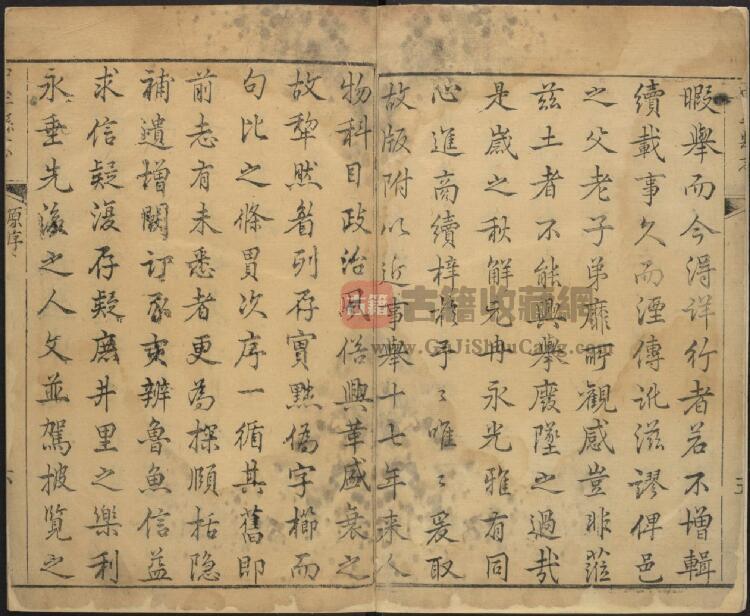 暇舉而今得詳行者若不增輯
續載事久而湮傳訛滋謬俾邑
之父老子弟靡所觀感豈非蒞
茲土者不能興舉廢墜之過哉
是歲之秋解元冉永光雅有同
心進商續梓予〻唯〻爰取
故版附以近事舉十七年來人
物科目政治風俗興革盛衰之
故犂然着列存實黜偽字櫛而
句比之條貫次序一循其舊即
前志有未悉者更為探括隐
補遺增闕訂豕亥辨魯魚信益
求信疑復存疑庶井里之樂利
永垂先後之人文並駕披覽之
原序
古籍
古籍收藏網
www.GuJiShuCang.com